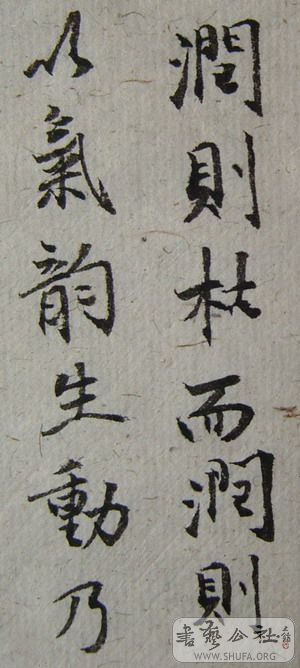 潤則枯而潤則
以氣韵生動乃
書藝公社
WWW.SHUFA.ORG